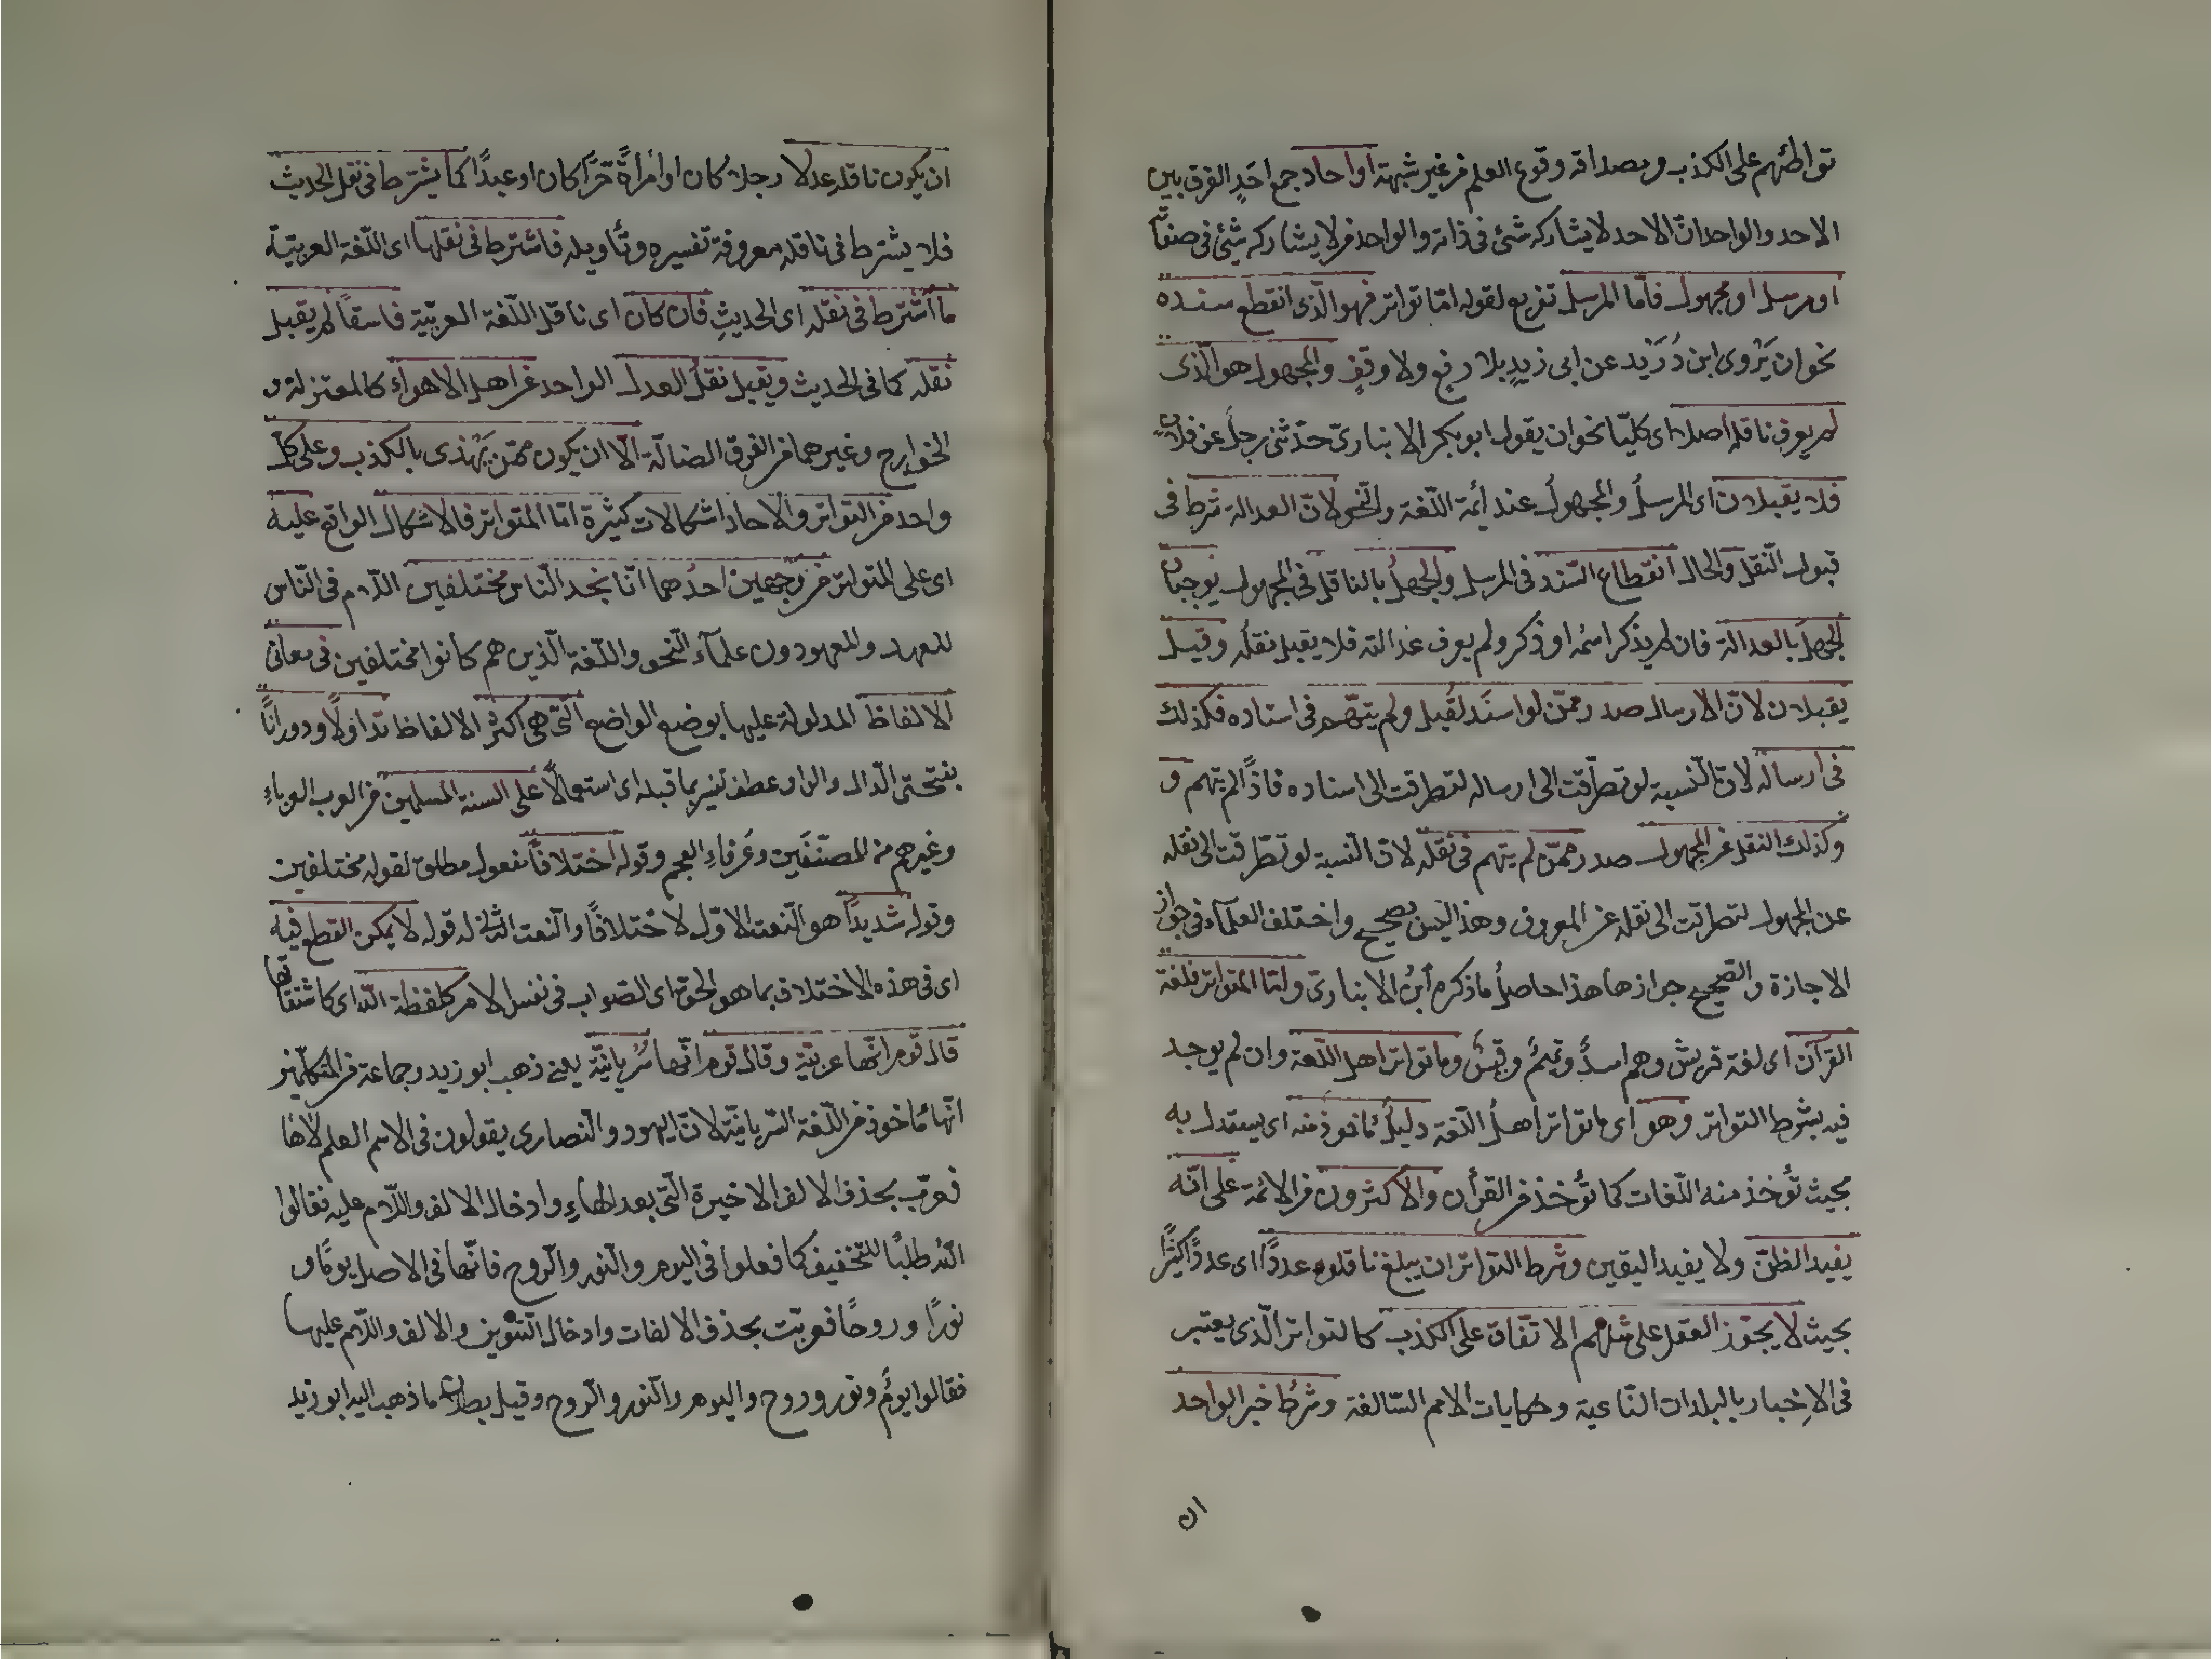 تواطئهم على الكذب ومصداقه وقوع العلم من غير شبهة اواحاد جمع احد الفرق بين
الاحد والواحد ان الاحد لا يشاركه شئ فى ذاته والواحد من لا يشاركه شئ فى صفاته
او مرسل او مجهول فاما المرسل تفريع لقوله امّا تواتر فهو الّذى انقطع سنده
نحو ان يَرْوى ابن دُرَيْد عن ابى زيدٍ بلا رفع ولا وقفٍ والمجهول هو الّذى
لم يعرف ناقله اصلا اى كليّا نحو ان يقول ابو بكر الانبارىّ حدّثنى رجلٌ عن فلانٍ
فلا يقبلان اى المرسلُ والمجهولُ عند ائمة اللّغة والنّحو لانّ العدالة شرط فى
قبول النّقل والحال انقطاع السّند فى المرسل والجهلُ بالناقل فى المجهول يوجبان
الجهلَ بالعدالة فان لم يذكر اسمُه او ذكر ولم يعرف عدالته فلا يقبل نقلُه وقيل
يقبلان لانّ الارسال صدر ممّن لو اسنَد لقُبل ولم يتّهم فى اسناده فكذلك
فى ارساله لانّ النّسبة لو تطرّقت الى ارساله لتطرقت الى اسناده فاذًا لم يتهم و
وكذلك النقل عن المجهول صدر ممّن لم يتهم فى نقله لان النّسبة لو تطرّقت الى نقله
عن المجهول لتطرقت الى نقله عن المعروف وهذا ليس بصحيح واختلف العلمآء فى جواز
الاجازة والصّحيح جوازها هذا حاصلُ ما ذكره ابنُ الانبارىّ وامّا المتواتر فلغة
القرآن اى لغة قريش وهم اسدٌ وتميمٌ وقيسٌ وما تواتر اهل اللّغة وان لم يوجد
فيه بشرط التواتر وهو اى ما تواتر اهلُ اللّغة دليلٌ مأخوذ منه اى يستدل به
بحيث تُؤخذ منه اللّغات كما تؤخذ من القرأن والاكثرون من الائمة على انّه
يفيد الظنّ ولا يفيد اليقين وشرط التواتر ان يبلغ ناقلوه عددًا اى عددًا كثيرًا
بحيث لا يجوّز العقل على مثلهم الاتّفاق على الكذب كالتواتر الّذى يعتبر
فى الاِخبار بالبلدان النّاعية وحكايات الامم السّالفة وشرطُ خبر الواحد
ان
ان يكون ناقله عدلا رجلا كان او امرأةً حرًّا كان او عبدًا كما يشترط فى نقل الحديث
فلا يشترط فى ناقله معروفة تفسيره وتأويله فاشترط فى نقلها اى اللّغة العربيّة
ما اشترط فى نقله اى الحديثِ فان كان اى ناقل اللّغة العربيّة فاسقًا لم يقبل
نقله كما فى الحديث ويقبل نقلُ العدل الواحد من اهل الاهواء كالمعتزلة و
الخوارج وغيرهما من الفرق الضالّة الّا ان يكون ممّن يَهْذى بالكذب وعلى كلّ
واحد من التواتر والاحاد اشكالات كثيرة امّا المتواتر فالاشكال الواقع عليه
اى على المتواتر من وجهين احدُهما انّا نجد النّاس مختلفين اللّام فى النّاس
للعهد والمعهودون علمآء النّحو واللّغة الّذين هم كانوا مختلفين فى معانى
الالفاظ المدلولة عليها بوضع الواضع الّتى هى اكثرُ الالفاظ تداولًا ودورانًا
بفتحتى الدّال والواو عطف تفسير بما قبله اى استعمالًا على السنة المسلمين من العرب العرباءِ
وغيرهم من المصنّفين وعرفاءِ العجم وقوله اختلافًا مفعول مطلق لقوله مختلفين
وقوله شديدًا هو النّعت الاوّل لاختلافًا والنّعت الثانى له قوله لا يمكن القطع فيه
اى فى هذه الاختلاف بما هو الحقّ اى الصّواب فى نفس الامر كلفظة اللّه اى كاشتقاقها
قال قوم انّها عربيّة وقال قوم انّها سُريانيّة يعنى ذهب ابو زيد وجماعة من المتكلّمين
انّها مأخوذ من اللّغة السّريانيّة لانّ اليهود والنّصارى يقولون فى الاسم العلم لاها
فعرّب بحذف الالف الاخيرة الّتى بعد الهاءِ وادخال الالف واللّام عليه فقالوا
اللّه طلبًا للتّخفيف كما فعلوا فى اليوم والنّور والرّوح فانّها فى الاصل يومًا و
نورًا وروحًا فعرّبت بحذف الالفات وادخال التّنوين والالف واللّام عليها
فقالوا يومٌ ونور وروح واليوم والنّور والرّوح وقيل بطلان ما ذهب اليه ابو زيد